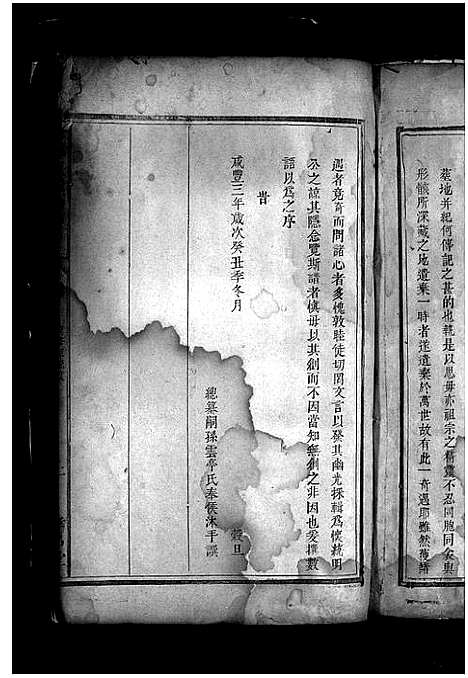 墓地并紀何傳記之甚的也輒是以思毋亦祖宗之精靈不忍同胞同氣與
形骸所深藏之地遺棄一時者遂遺棄於萬世故有此一奇遇耶雖然薄緒
遇者竟奇而問諸心者多愧敦睦徒切罔文言以發其幽光採輯爲懷統明
公之諒其隱念覽斯譜者愼毋以其創而不因當知無創之非因也爰撰數
語以爲之序
旹
咸豐三年歲次癸丑季冬月 穀旦
總纂嗣孫雲亭氏奉懷沐手譔